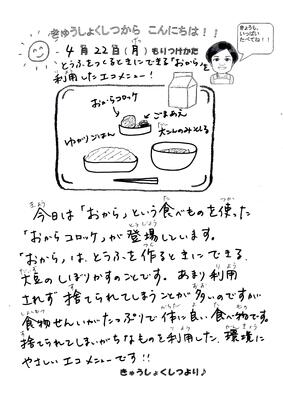 きゅうしょくしつから こんにちは！！
きょうも、
いっぱい
たべてね！！
4月22日(月) もりつけかた
とうふをつくるときにできる「おから」を
利用したエコメニュー！
おからコロッケ
ごまあえ
ゆかりごはん
大こんのみそしる
今日は「おから」という食べものを使った
「おからコロッケ」が登場しています。
「おから」は、とうふを作るときにできる、
大豆のしぼりかすのことです。あまり利用
されず捨てられてしまうことが多いのですが
食物せんいがたっぷりで体に良い食べ物です。
捨てられてしまいがちなものを利用した、環境に
やさしいエコメニューです!!
きゅうしょくしつより♪